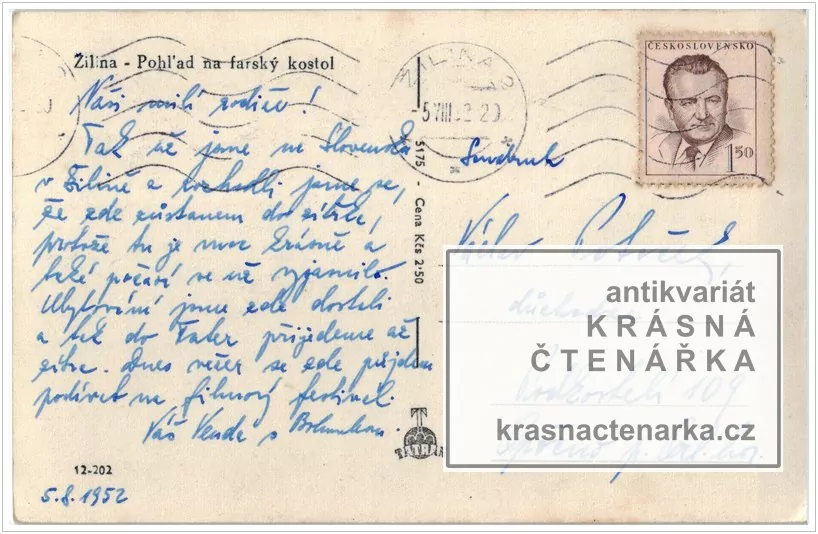 Žilina - Pohľad na farský kostol
Naši milí rodiče!
Tak už jsme na Slovensku
v Žilině a rozhodli jsme se,
že zde zůstanem do zítřka,
protože tu je moc krásně a
také počasí se už vyjasnilo.
Ubytování jsme zde dostali
a tak do Tater přijedeme až
zítra. Dnes večer se zde půjdem
podívat na filmový festival.
Váš Venda s
12-202
5.8.1952
5175 - Cena Kčs 2·50
TATRAN
ŽILINA 2
ČESKOSLOVENSKO
1 50
Václav
důchodce
109
antikvariát
KRÁSNÁ
ČTENÁŘKA
krasnactenarka.cz